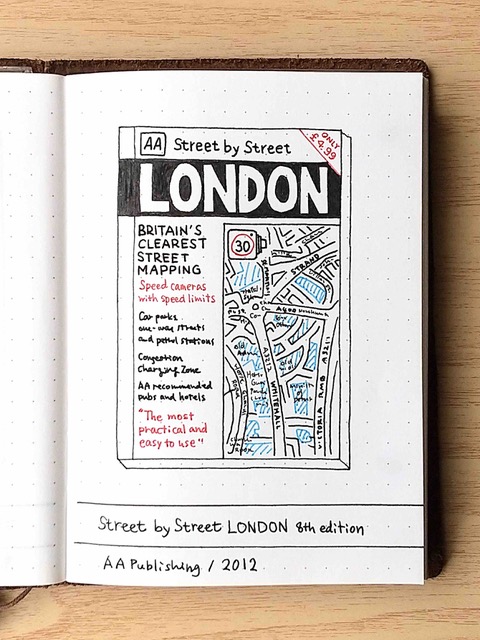 AA Street by Street
ONLY
£4.99
LONDON
BRITAIN'S
CLEAREST
STREET
MAPPING
Speed cameras
with speed limits
Car parks
one-way streets
and petrol stations
Congestion
Charging Zone
AA recommended
pubs and hotels
"The most
practical and
easy to use"
30
STRAND
A400
A3212
WHITEHALL
A3211
VICTORIA EMB
Street by Street LONDON 8th edition
AA Publishing / 2012